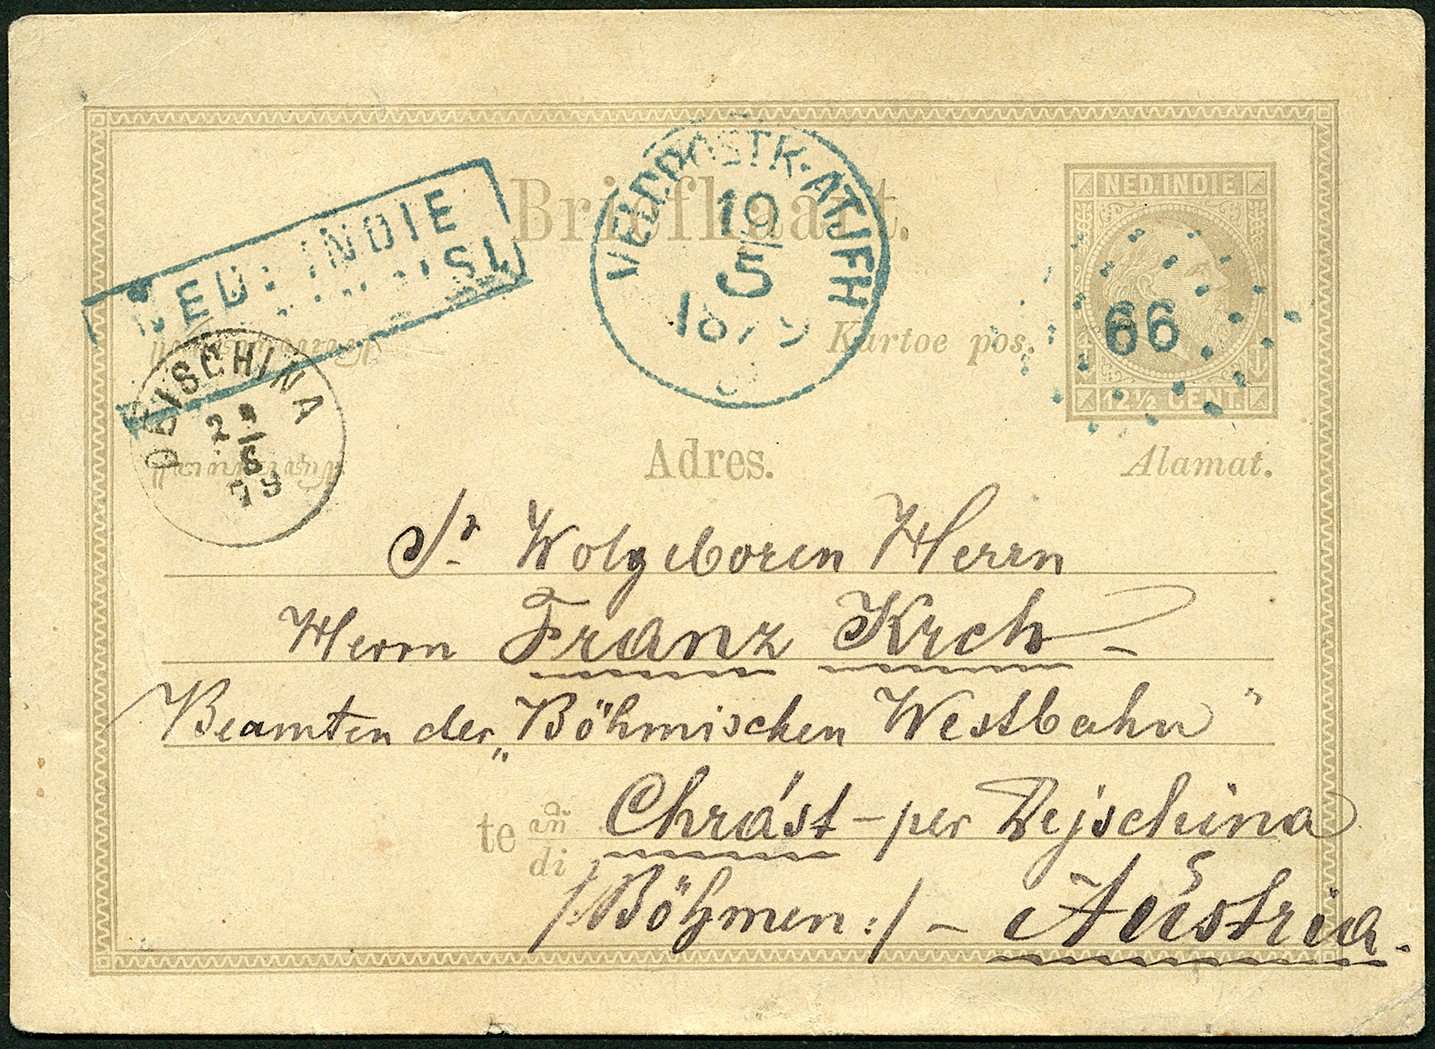 Briefkaart.
NED. INDIE
VELDPOSTK·ATJEH
19
5
1879
NED. INDIE
66
12½ CENT.
Kartoe pos.
DEISCHINA
2
8
79
Adres.
Alamat.
Sr. Wolgeboren Herrn
Herrn Franz Krch –
Beamten der „Böhmischen Westbahn"
te di Chrást – per Dejschina
/: Böhmen :/ – Austria.